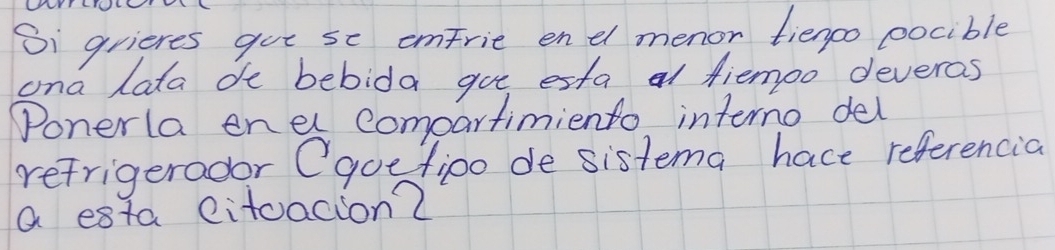 Si quieres que se emfrie en el menor tienpo pocible
una lata de bebida que esta al tiempo deveras
Ponerla en el compartimiento interno del
refrigerador Cque tipo de sistema hace referencia
a esta cituacion?